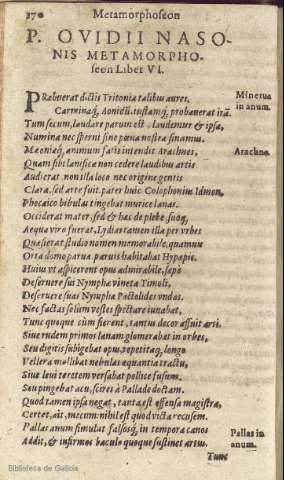 170
Metamorphoseon
P. OVIDII NASO-
NIS METAMORPHO-
seon Liber VI.
PRæbuerat dictis Tritonia talibus aures,
Carminaq́; Aonidũ, iustamq́; probauerat irã.
Tum secum, laudare parum est, laudemur & ipsa,
Numina nec sperni sine pœna nostra sinamus.
Mæoniæq́; animum fatis intendit Arachnes,
Quam sibi lanificæ non cedere laudibus artis
Audierat. non illa loco nec origine gentis
Clara, sed arte fuit. pater huic Colophonius Idmon,
Phocaico bibulas tingebat murice lanas.
Occiderat mater, sed & hæc de plebe, suoq́;
Aequa viro fuerat, Lydias tamen illa per vrbes
Quæsierat studio nomen memorabile. quamuis
Orta domo parua paruis habitabat Hypæpis.
Huius vt aspicerent opus admirabile, sæpè
Deseruere sui Nymphæ vineta Timoli,
Deseruere suas Nymphæ Pactolides vndas.
Nec factas solùm vestes spectare iuuabat,
Tunc quoque cùm fierent, tantus decor affuit arti.
Siue rudem primos lanam glomerabat in orbes,
Seu digitis subigebat opus, repetitaq́; longo
Vellera mollibat nebulas æquantia tractu,
Siue leui teretem versabat pollice fusum,
Seu pingebat acu, scires à Pallade doctam.
Quod tamen ipsa negat, tanta est offensa magistra,
Certet, ait, mecum: nihil est quod victa recusem.
Pallas anum simulat falsosq́; in tempora canos
Addit, & infirmos baculo quoque sustinet artus.
Tunc
Minerua
in anum.
Arachne.
Pallas in
anum.
Biblioteca de Galicia